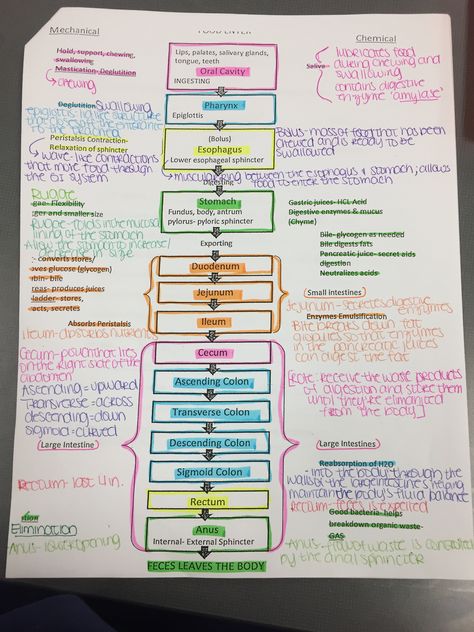 Mechanical
FOOD ENTER
Chemical
Hold, support, chewing,
swallowing
Mastication- Deglutition
chewing
Lips, palates, salivary glands,
tongue, teeth
Oral Cavity
INGESTING
Saliva
lubricates food
during chewing and
swallowing
contains digestive
enzyme 'amylase'
Deglutition swallowing
Epiglottis
to the
Pharynx
Epiglottis
Peristalsis Contraction-
Relaxation of sphincter
wave-like contractions
that move food through
the GI system
(Bolus)
Esophagus
Lower esophageal sphincter
Digesting
Bolus-mass of food that has been
chewed and is ready to be
swallowed
muscular ring between the esophagus & stomach; allows
food to enter the stomach
Rugae
gae- Flexibility
ger and smaller size
Rugae-folds in the mucosal
lining of the stomach
Allow the stomach to increase/
decrease in size
Stomach
Fundus, body, antrum
pylorus- pyloric sphincter
Exporting
Gastric juices- HCL Acid
Digestive enzymes & mucus
(Chyme)
Bile- glycogen as needed
Bile digests fats
Pancreatic juice- secret aids
digestion
Neutralizes acids
:- converts stores/
oves glucose (glycogen)
rbin- bile
reas- produces juices
ladder- stores,
acts, secretes
Absorbs Peristalsis
Ileum-absorbs nutrients
Duodenum
Jejunum
Ileum
(Small intestines)
Jejunum-secretes digestive
enzymes
Enzymes Emulsification
Bile breaks down fat
globules so the enzymes
in the pancreatic juices
can digest the fat
Cecum-pouch that lies
on the right side of the
abdomen
Ascending=upward
Transverse=across
descending=down
sigmoid=curved
(Large Intestine)
Cecum
Ascending Colon
Transverse Colon
Descending Colon
Sigmoid Colon
[Role: receive the waste products
of digestion and store them
until they're eliminated
from the body]
(Large Intestines)
Reabsorption of H2O
-into the body through the
walls of the large intestines helping
maintain the body's fluid balance
Rectum- last 4 in.
Rectum
Rectum-feces is expelled
Good bacteria- helps
breakdown organic waste
GAS
Elimination
Anus-lower opening
Anus
Internal- External Sphincter
Anus-flow of waste is controlled
by the anal sphincter
FECES LEAVES THE BODY